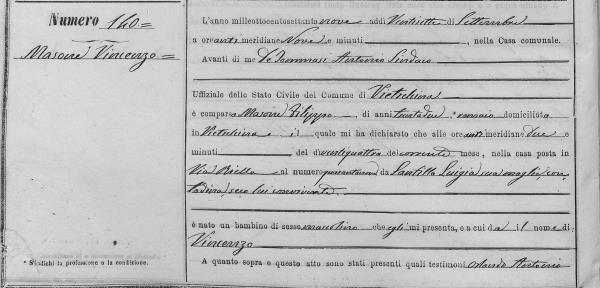 Numero 140=
Masone Vincenzo=
* S'indichi la professione o la condizione.
L'anno milleottocentosettantanove addì Ventisette di Settembre
a ore antimeridiane Nove e minuti, nella Casa comunale.
Avanti di me De Tommasi Antonio Sindaco
Uffiziale dello Stato Civile del Comune di
è comparso Filippo, di anni trentadue, domiciliato
in il quale mi ha dichiarato che alle ore antimeridiane due e
minuti del dì ventiquattro del corrente mese, nella casa posta in
Via al numero da Luigia sua moglie, con-
tadina, seco lui convivente
è nato un bambino di sesso mascolino che egli mi presenta, e a cui dà il nome di
Vincenzo
A quanto sopra e questo atto sono stati presenti quali testimoni Orlando Antonio